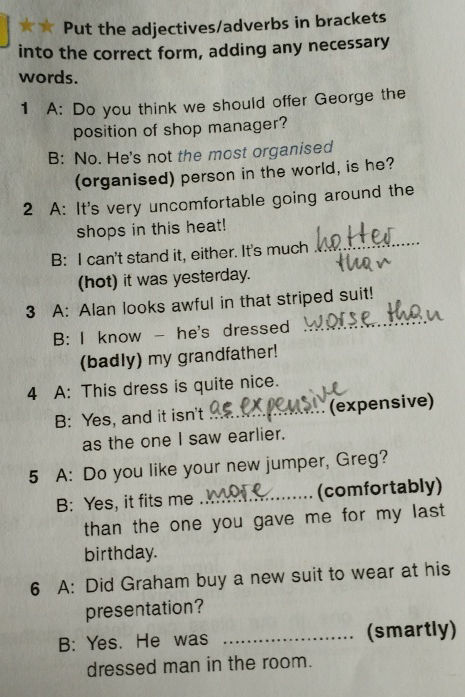 ★★ Put the adjectives/adverbs in brackets
into the correct form, adding any necessary
words.
1 A: Do you think we should offer George the
position of shop manager?
B: No. He's not the most organised
(organised) person in the world, is he?
2 A: It's very uncomfortable going around the
shops in this heat!
B: I can't stand it, either. It's much hotter
than
(hot) it was yesterday.
3 A: Alan looks awful in that striped suit!
B: I know – he's dressed worse than
(badly) my grandfather!
4 A: This dress is quite nice.
B: Yes, and it isn't as expensive (expensive)
as the one I saw earlier.
5 A: Do you like your new jumper, Greg?
B: Yes, it fits me more (comfortably)
than the one you gave me for my last
birthday.
6 A: Did Graham buy a new suit to wear at his
presentation?
B: Yes. He was .................... (smartly)
dressed man in the room.